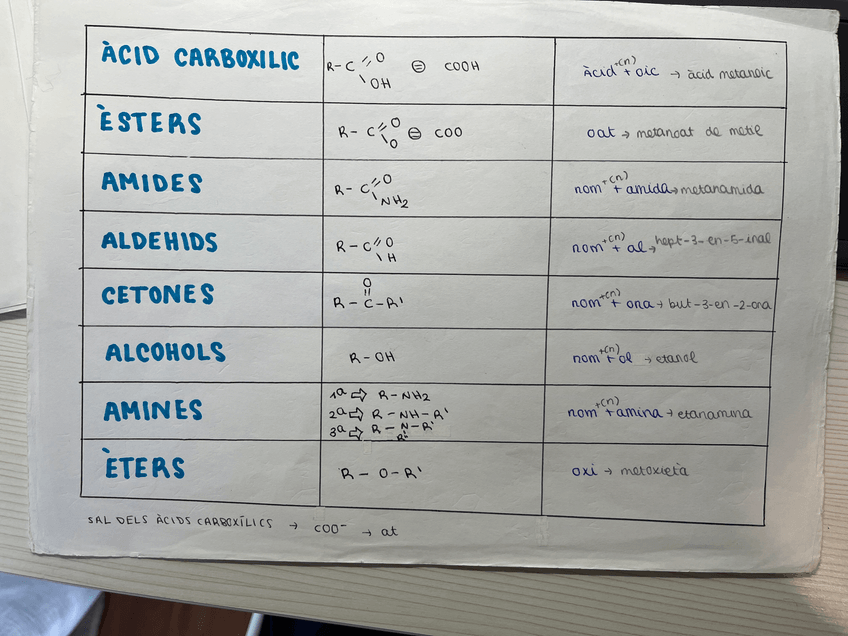 ÀCID CARBOXILIC
R-C=O OH ⊜ COOH
Àcid +(n) + oic → àcid metanoic
ÈSTERS
R-C=O O ⊜ COO
oat → metanoat de metil
AMIDES
R-C=O NH2
nom +(n) + amida → metanamida
ALDEHIDS
R-C=O H
nom +(n) + al → hept-3-en-5-inal
CETONES
O
R-C-R'
nom +(n) + ona → but-3-en-2-ona
ALCOHOLS
R-OH
nom +(n) + ol → etanol
AMINES
1a ⇨ R-NH2
2a ⇨ R-NH-R'
3a ⇨ R-N-R'
R'
nom +(n) + amina → etanamina
ÈTERS
R-O-R'
oxi → metoxietà
SAL DELS ÀCIDS CARBOXÍLICS → COO⁻ → at